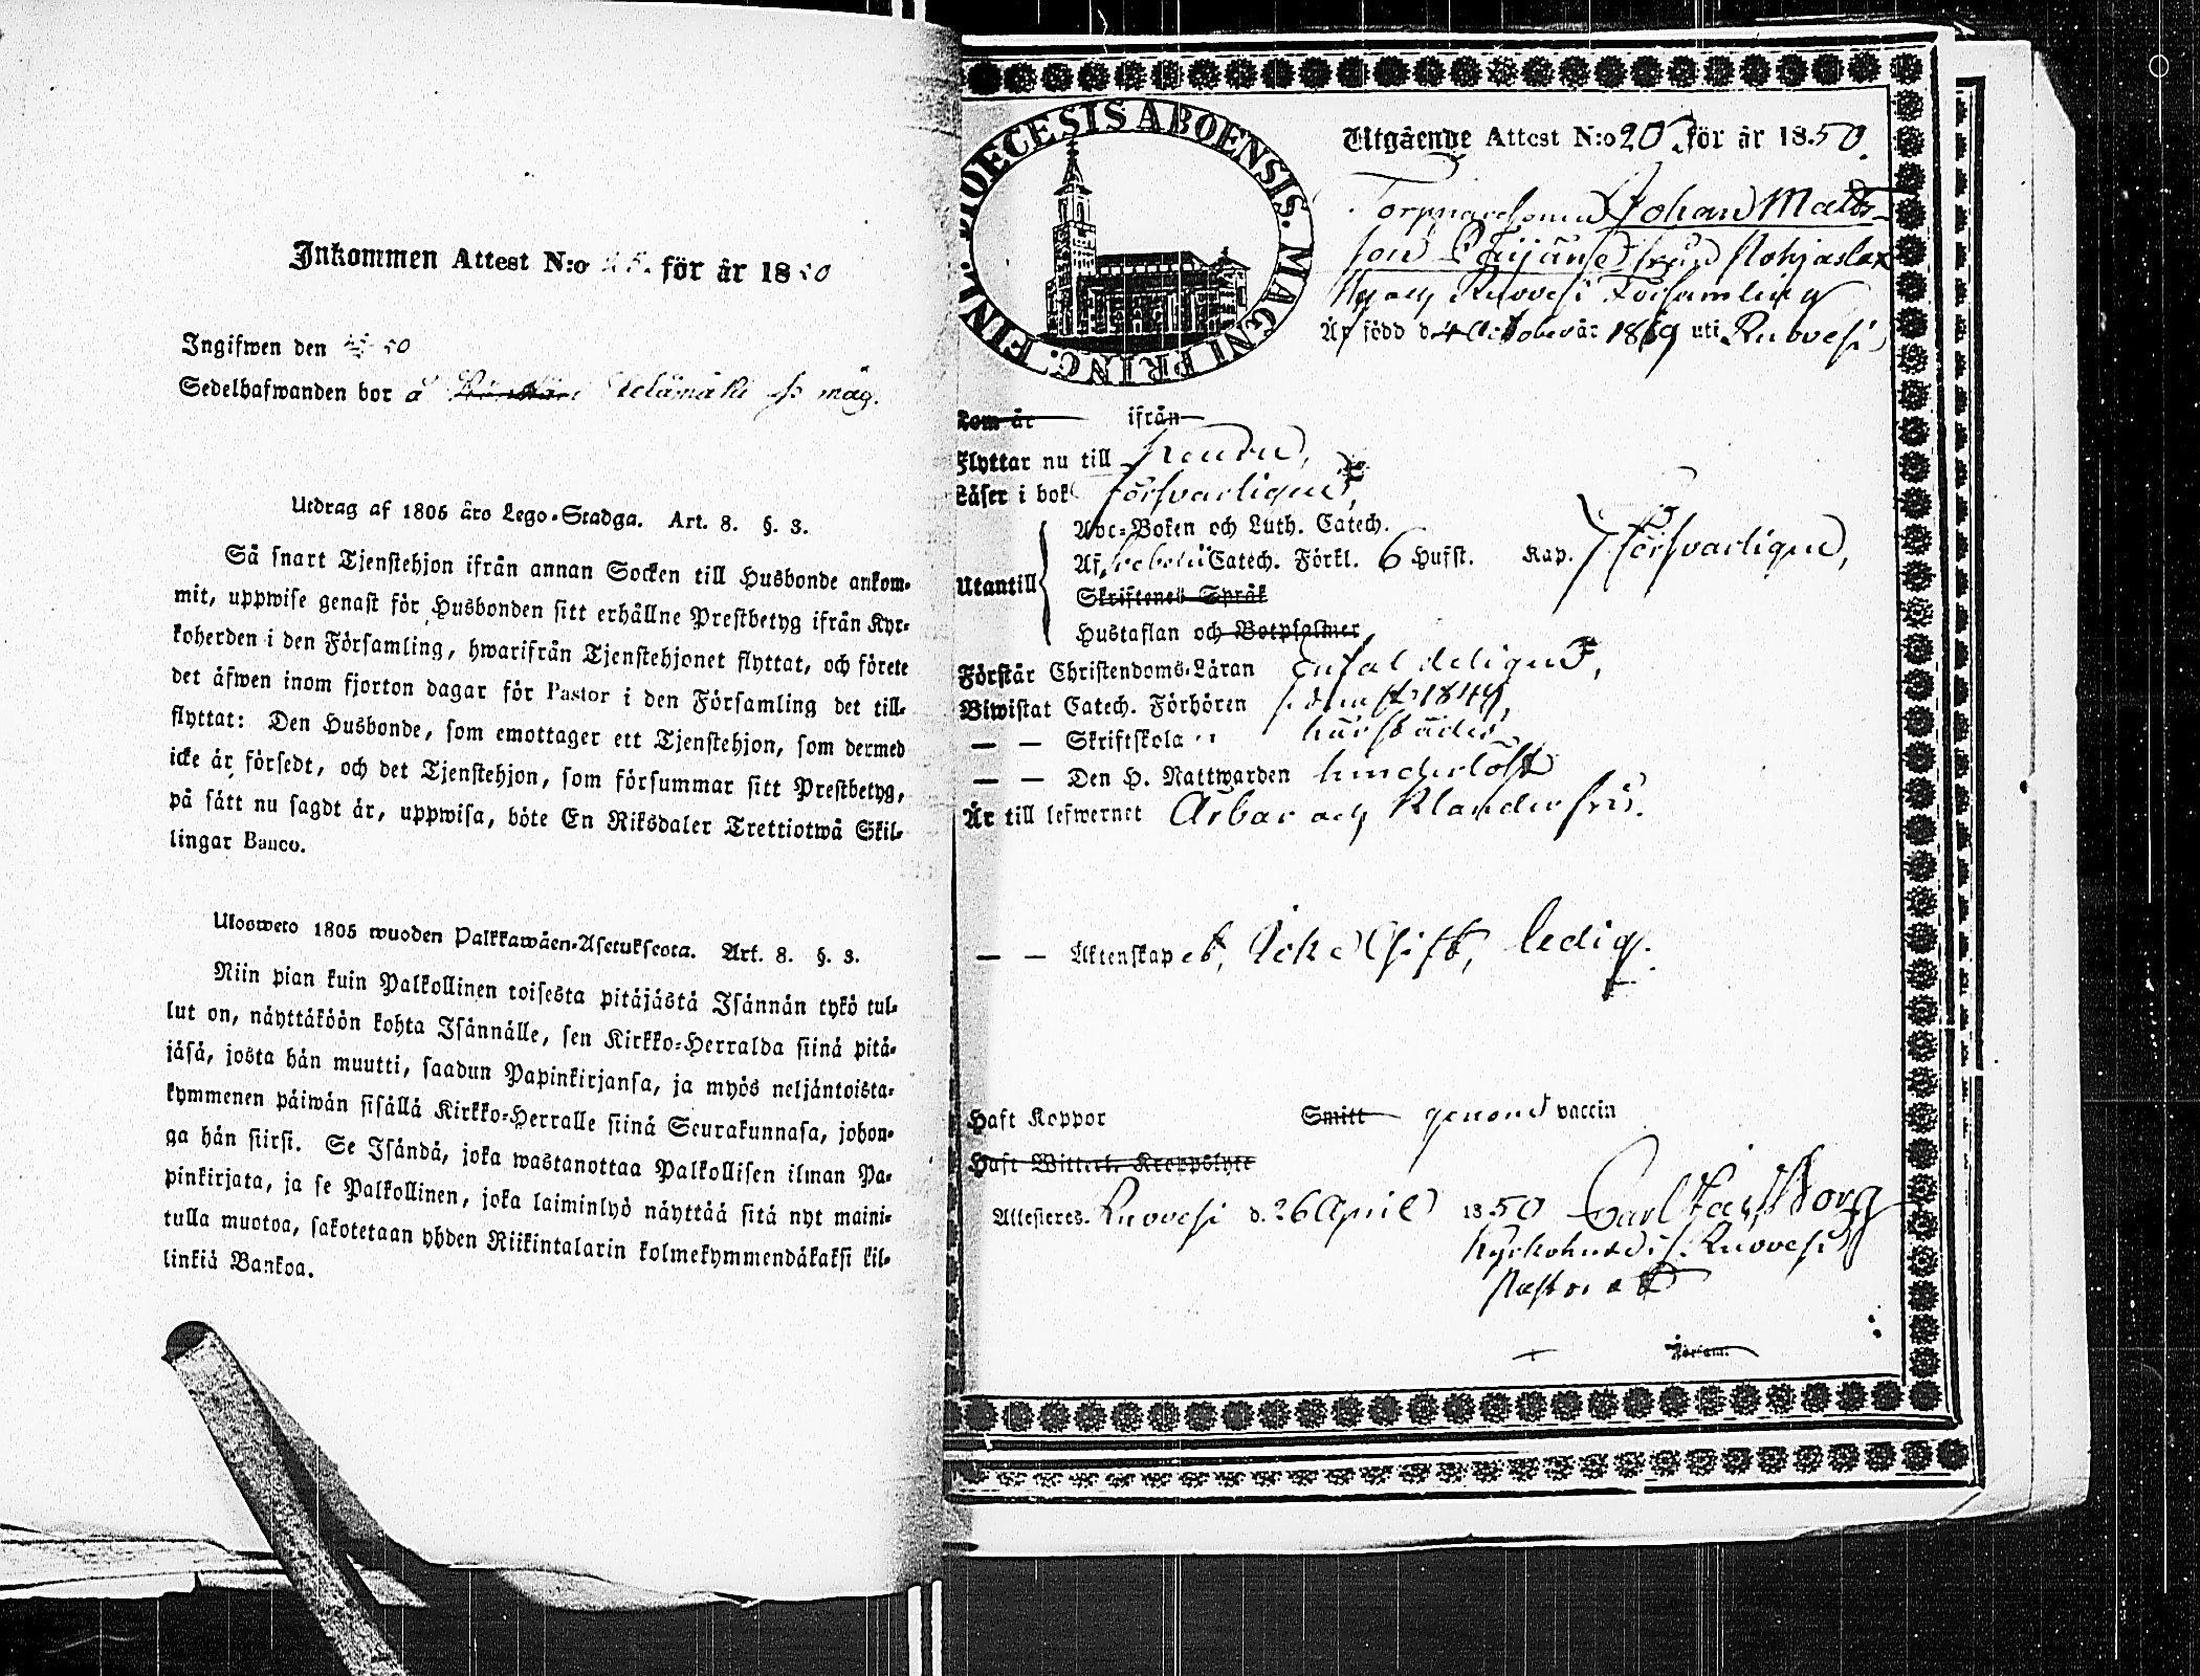 Inkommen Attest N:o för år 1850
Ingifwen den 50
Sedelhafwanden bor å mäg.
Utdrag af 1805 års Lego-Stadga. Art. 8. §. 3.
Så snart Tjenstehjon ifrån annan Socken till Husbonde ankom-
mit, uppwise genast för Husbonden sitt erhållne Prestbetyg ifrån Kyr-
koherden i den Församling, hwarifrån Tjenstehjonet flyttat, och förete
det äfwen inom fjorton dagar för Pastor i den Församling det till-
flyttat: Den Husbonde, som emottager ett Tjenstehjon, som dermed
icke är försedt, och det Tjenstehjon, som försummar sitt Prestbetyg,
på sätt nu sagdt är, uppwisa, böte En Riksdaler Trettiotwå Skil-
lingar Banco.
Ulosweto 1805 wuoden Palkkawäen-Asetuksesta. Art. 8. §. 3.
Niin pian kuin Palkollinen toisesta pitäjästä Isännän tykö tul-
lut on, näyttäköön kohta Isännälle, sen Kirkko-Herralda siinä pitä-
jäsä, josta hän muutti, saadun Papinkirjansa, ja myös neljäntoista-
kymmenen päiwän sisällä Kirkko-Herralle siinä Seurakunnasa, johon-
ga hän siirsi. Se Isändä, joka wastanottaa Palkollisen ilman Pa-
pinkirjata, ja se Palkollinen, joka laiminlyö näyttää sitä nyt maini-
tulla muotoa, sakotetaan yhden Riikintalarin kolmekymmendäkaksi kil-
linkiä Bankoa.
DIOECESIS ABOENSIS. MAGNI PRINC. FINL.
Utgående Attest N:o 20 för år 1850.
Torpparesonen Johan Matts-
son från Pohjaslax
By och Ruovesi Församling
Är född d. 4 October år 18 9 uti Ruovesi
kom år ifrån
Flyttar nu till
Läser i bok försvarligen,
Abc-Boken och Luth. Catech.
Af Catech. Förkl. 6 Hufst. Kap. försvarligen,
Utantill
Skriftenes Språk
Hustaflan och Botpsalmer
Förstår Christendoms-Läran enfaldeligen,
Biwistat Catech. Förhören sednast 1849,
— — Skriftskola härstädes
— — Den H. Nattwarden hinderlöst
Är till lefwernet Ärbar och klanderfri.
— — Äktenskapet, Icke Gift, ledig.
Haft Koppor Smitt genom vaccin
Haft Witterl. Kroppslyte
Attesteres. Ruovesi d. 26 April 1850 Carl
Kyrkoherde i Ruovesi
Pastorat
Församl.